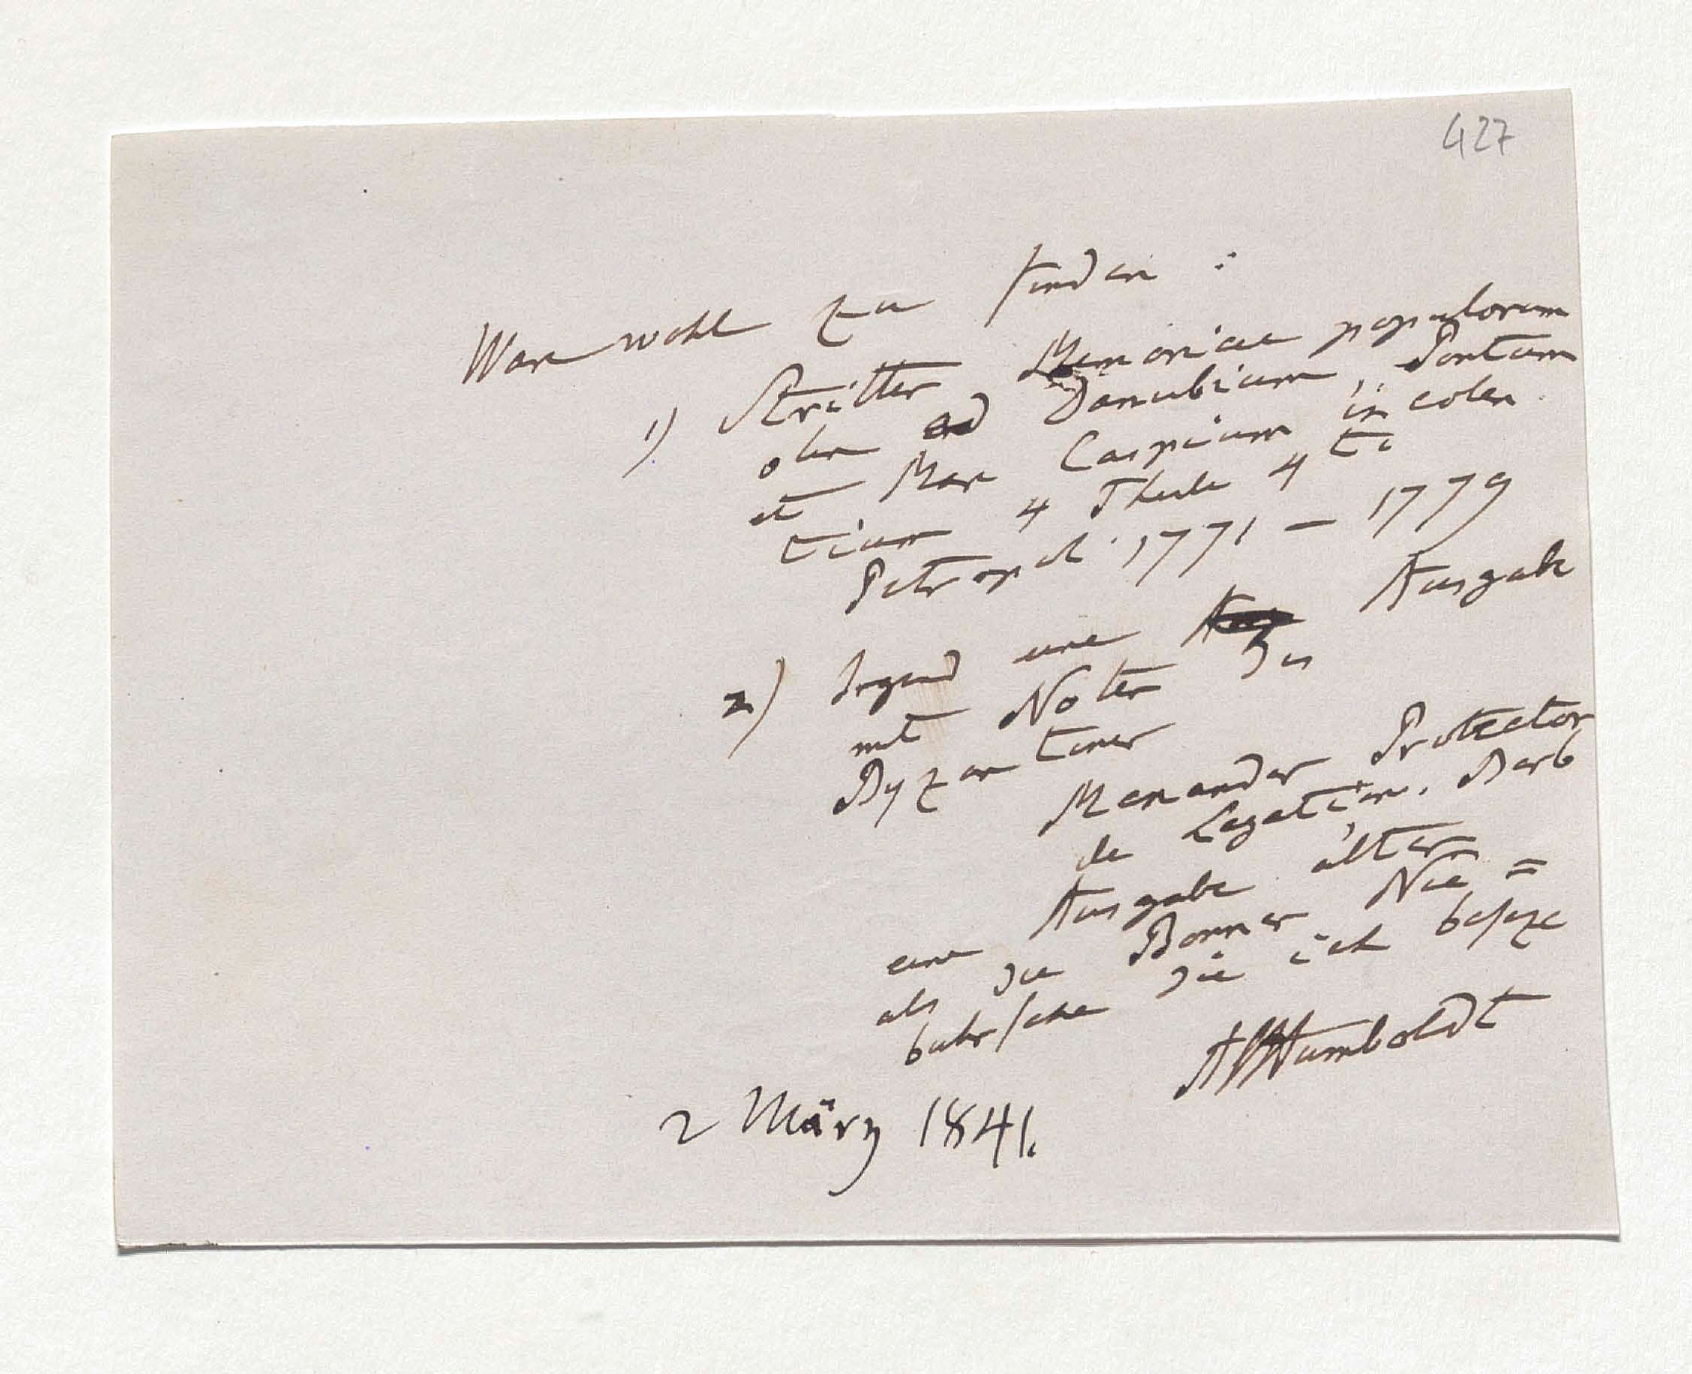 427
Ware wohl zu finden:
1) Stritter Memoriae populorum
olim ad Danubium, Pontum
et Mare Caspium incolen
tium 4 Theile 4to
Petropol. 1771–1779
2) Irgend eine Ausgabe
mit Noten des
Byzantiner
Menander Protector
de Legation. Barb
eine Ausgabe älter
als die Bonner Nie=
buhrsche die ich besize
AvHumboldt
2 März 1841.